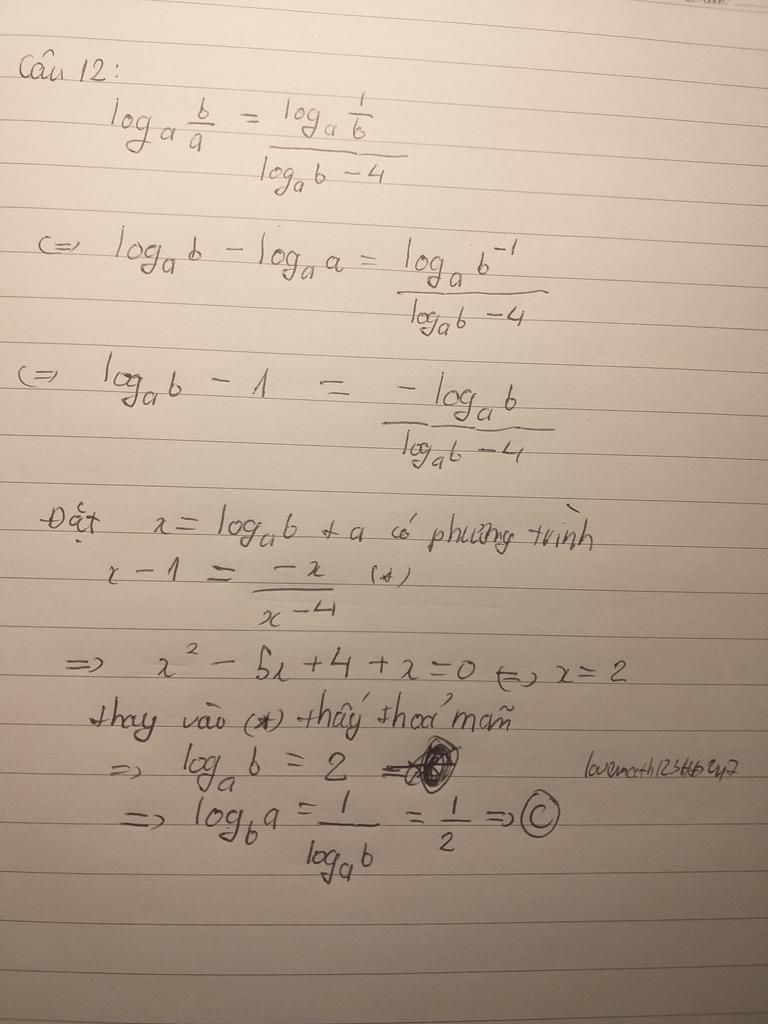 Câu 12:
log_a b/a = (log_a 1/b)/(log_a b - 4)
<=> log_a b - log_a a = (log_a b^-1)/(log_a b - 4)
<=> log_a b - 1 = (-log_a b)/(log_a b - 4)
Đặt x = log_a b ta có phương trình
x - 1 = (-x)/(x - 4) (*)
=> x² - 5x + 4 + x = 0 <=> x = 2
thay vào (*) thấy thoả mãn
=> log_a b = 2
=> log_b a = 1/(log_a b) = 1/2 => C